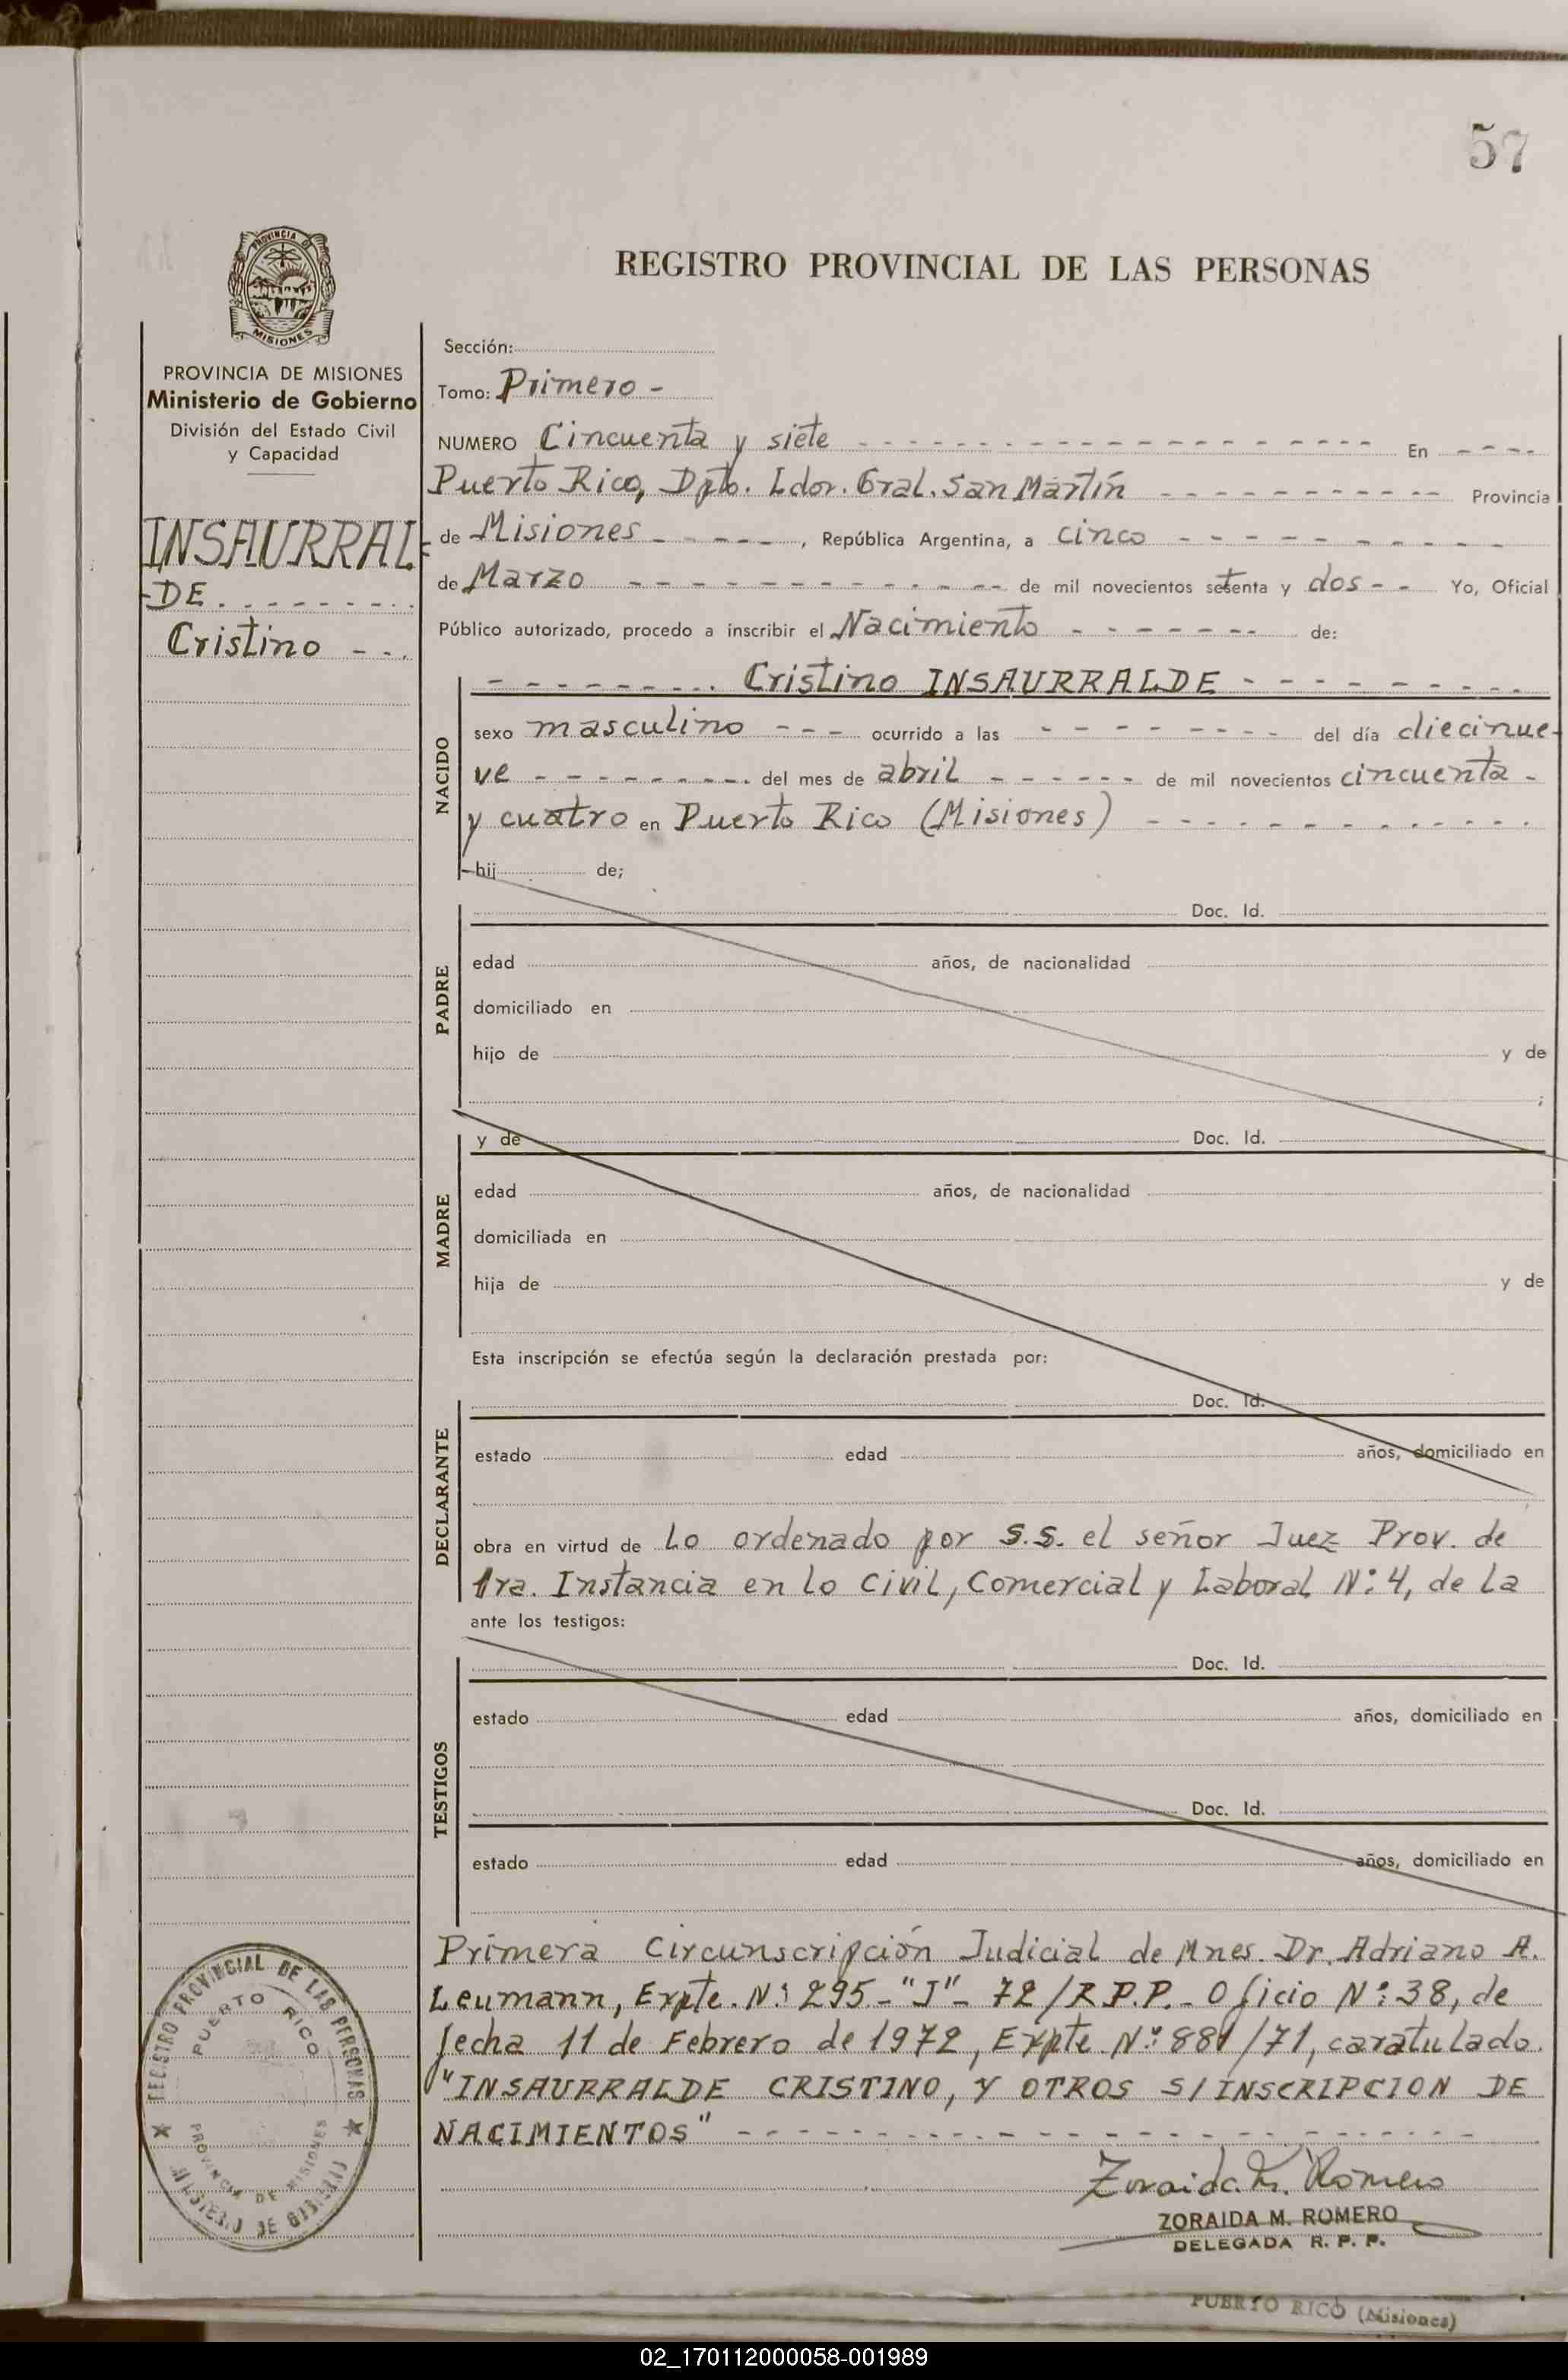 57
PROVINCIA DE
MISIONES
REGISTRO PROVINCIAL DE LAS PERSONAS
PROVINCIA DE MISIONES
Ministerio de Gobierno
División del Estado Civil
y Capacidad
INSAURRAL-
DE
Cristino
Sección:
Tomo: Primero -
NUMERO Cincuenta y siete En
Puerto Rico, Dpto. Ldor. Gral. San Martín Provincia
de Misiones, República Argentina, a cinco
de Marzo de mil novecientos setenta y dos Yo, Oficial
Público autorizado, procedo a inscribir el Nacimiento de:
Cristino INSAURRALDE
NACIDO
sexo masculino ocurrido a las del día diecinue-
ve del mes de abril de mil novecientos cincuenta
y cuatro en Puerto Rico (Misiones)
hij de;
PADRE
Doc. Id.
edad años, de nacionalidad
domiciliado en
hijo de y de
;
MADRE
y de Doc. Id.
edad años, de nacionalidad
domiciliada en
hija de y de
Esta inscripción se efectúa según la declaración prestada por:
DECLARANTE
Doc. Id.
estado edad años, domiciliado en
obra en virtud de Lo ordenado por S.S. el señor Juez Prov. de
1ra. Instancia en lo Civil, Comercial y Laboral Nº 4, de la
ante los testigos:
TESTIGOS
Doc. Id.
estado edad años, domiciliado en
Doc. Id.
estado edad años, domiciliado en
Primera Circunscripción Judicial de Mnes. Dr. Adriano A.
Leumann, Expte. Nº 295-"J"- 72/R.P.P.- Oficio Nº 38, de
fecha 11 de Febrero de 1972, Expte. Nº 881/71, caratulado.
"INSAURRALDE CRISTINO, Y OTROS S/INSCRIPCION DE
NACIMIENTOS"
REGISTRO PROVINCIAL DE LAS PERSONAS
PUERTO RICO
PROVINCIA DE MISIONES
MINISTERIO DE GOBIERNO
Zoraida M. Romero
ZORAIDA M. ROMERO
DELEGADA R. P. P.
PUERTO RICO (Misiones)
02_170112000058-001989